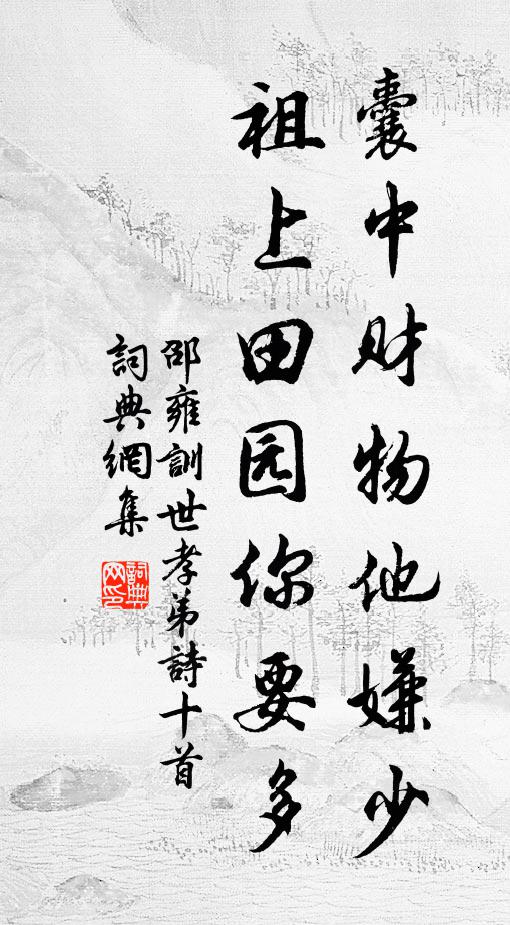 囊中财物他嫌少
祖上田园你要多
邵雍訓世孝弟詩十首
詞典網集
詞典
网印